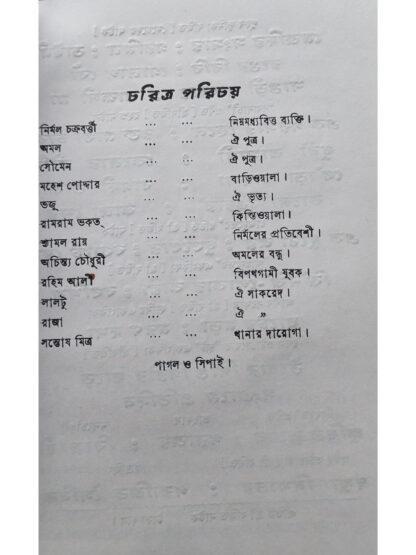 চরিত্র পরিচয়
নির্মল চক্রবর্ত্তী ... ... নিম্নমধ্যবিত্ত ব্যক্তি।
অমল ... ... ঐ পুত্র।
সৌমেন ... ... ঐ পুত্র।
মহেশ পোদ্দার ... ... বাড়িওয়ালা।
ভজু ... ... ঐ ভৃত্য।
রামরাম ভকত্ ... ... কিস্তিওয়ালা।
শ্যামল রায় ... ... নির্মলের প্রতিবেশী।
অচিন্ত্য চৌধুরী ... ... অমলের বন্ধু।
রহিম আলী ... ... বিপথগামী যুবক।
লালটু ... ... ঐ সাকরেদ।
রাজা ... ... ঐ „ ।
সন্তোষ মিত্র ... ... থানার দারোগা।
পাগল ও সিপাই।